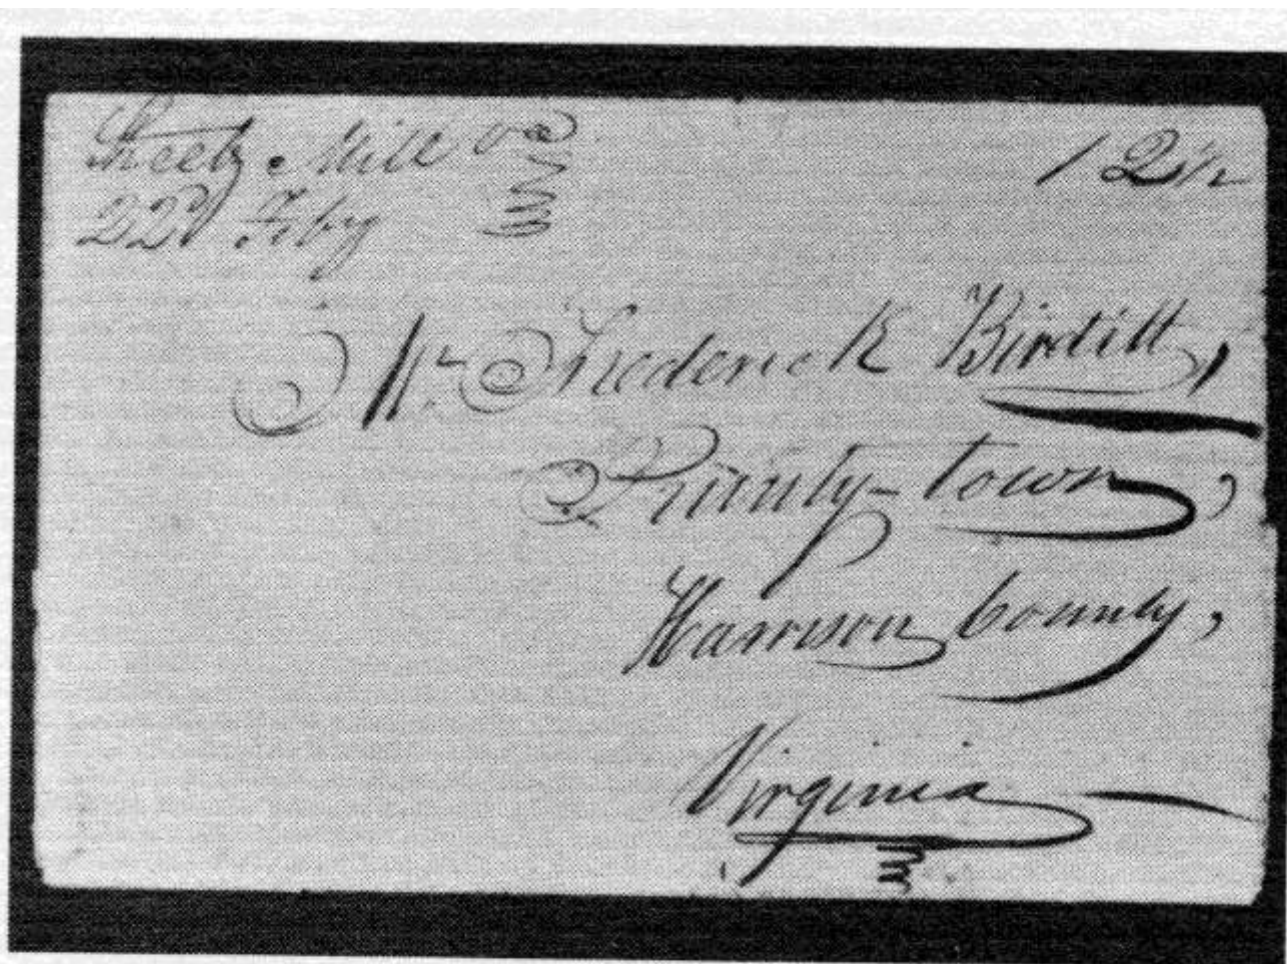 Sheetz Mill Va
22d Feby
12½
Mr Frederick Birtitt,
Prunty-town,
Harrison County,
Virginia